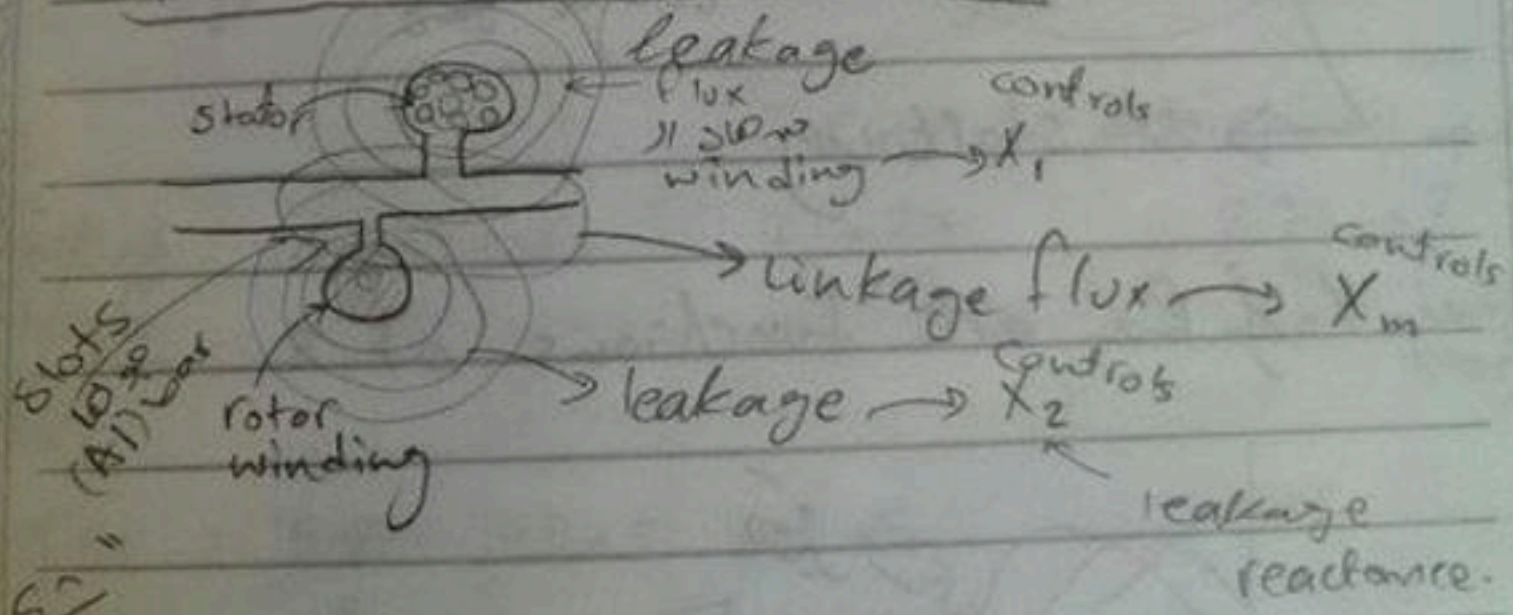 leakage
flux
stator
winding → X₁
controls
linkage flux → Xm
controls
leakage → X₂
controls
leakage
reactance.
slots
(Al) bar
rotor
winding